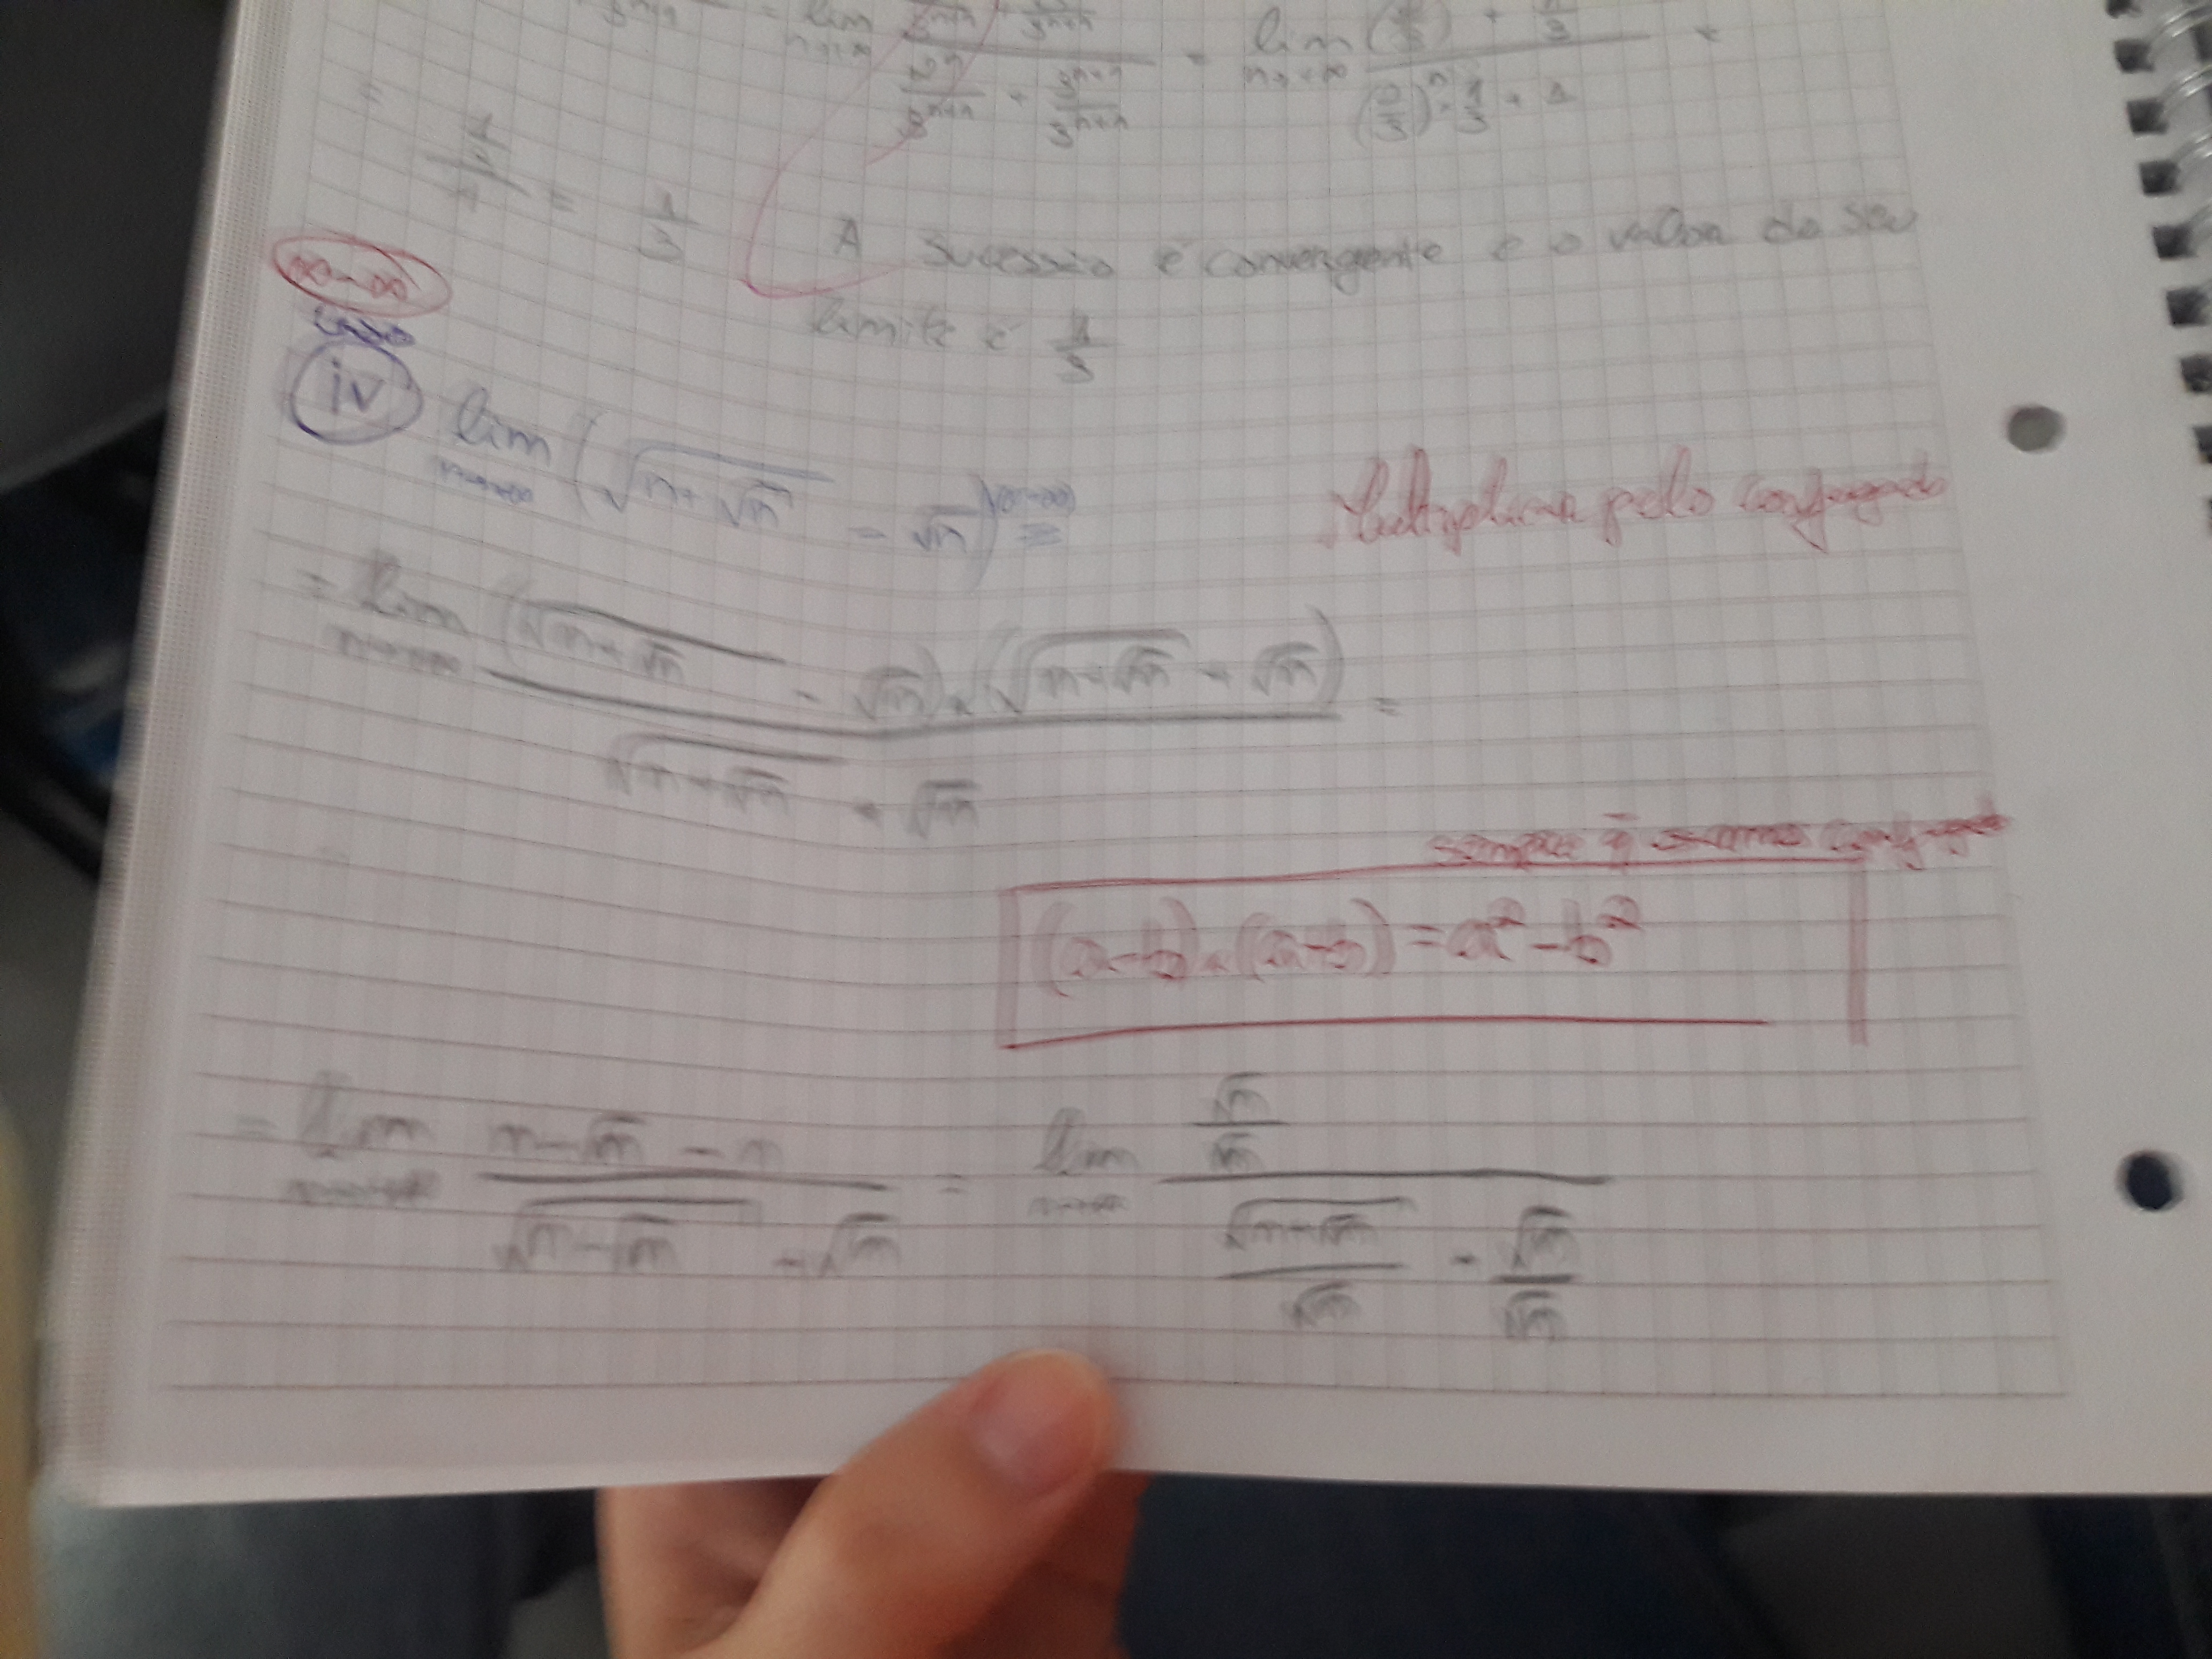 = lim n→+∞ = lim n→+∞ / (2/3)^n × 1/3 + 1 =
= = 1/3 A sucessão é convergente e o valor do seu
limite é 1/3
∞-∞
iv lim n→+∞ (√(n+√n) - √n) (∞-∞) = Multiplicar pelo conjugado
= lim n→+∞ (√(n+√n) - √n) × (√(n+√n) + √n) / √(n+√n) + √n =
sempre q conjugado
(a-b) × (a+b) = a² - b²
= lim n→+∞ n+√n - n / √(n+√n) + √n = lim n→+∞ √n/√n / √(n+√n)/√n + √n/√n